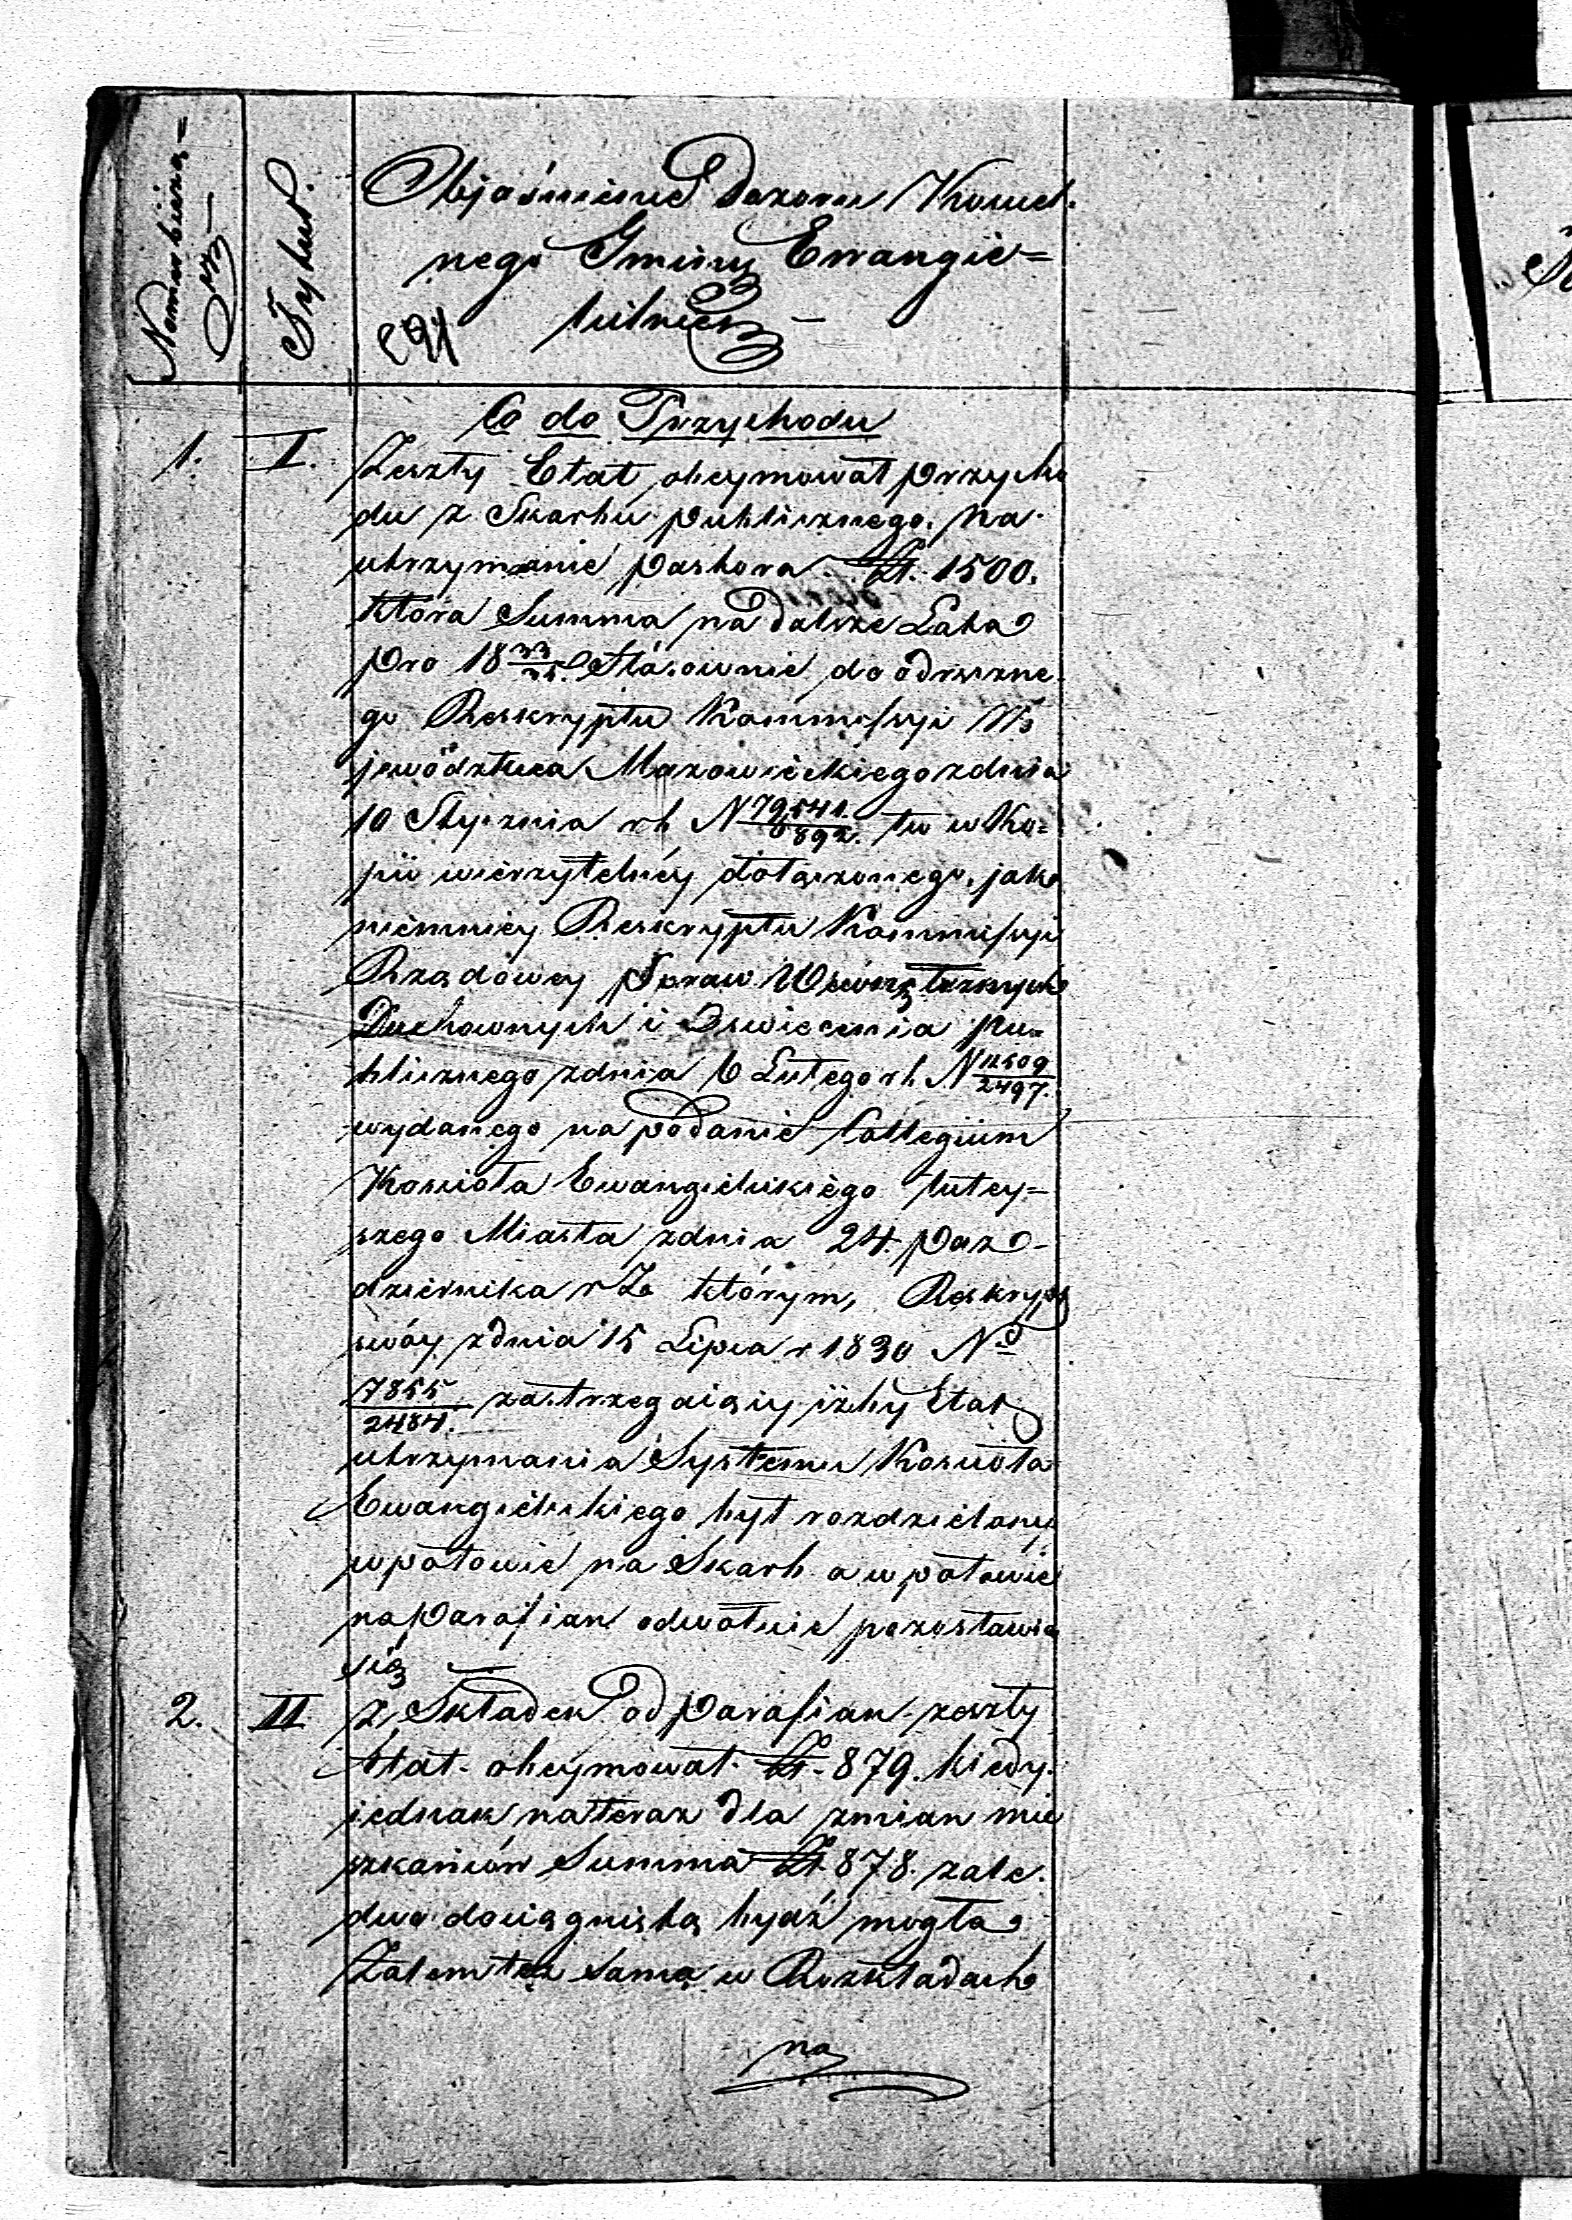 Numer bieżą=
cy
Tytuł.
Objaśnienie Dozoru Kosciel.
nego Gminy Ewangie=
lickiey
Co do Przychodu
1. I. Zeszły Etat obeymował przycho
du z Skarbu publicznego. na
utrzymanie pastora Zł. 1500.
która Summa na dalsze Lata
pro 18 33/35. Stósownie do odręczne.
go Reskryptu Kommissyi Wo
jewództwa Mazowieckiego z dnia
10 Stycznia rb N 79541./892. tu w Ko=
pii wierzytelnéy dołączonego, jako
niemniey Reskryptu Kommissyi
Rządowey Spraw Wewnętrznych
Duchownych i Oswiecenia pu=
blicznego z dnia 6 Lutego rb. N 12509/2497.
wydanego na podanie Collegium
Kosciola Ewangielickiego tutey=
szego Miasta z dnia 24. paz-
dziernika r Z. którym, Reskrypt
swóy z dnia 15 Lipca r 1830 No
7855/2484. zastrzegaiący iżby Etat
utrzymania Systemu Kosciola
Ewangielickiego był rozdzielony
w połowie na Skarb a w połowie
na parafian odwołuie pozostawia
się
2. II. Z Składek od parafian zeszły
Etat obeymował Zł. 879. kiedy
jednak na teraz dla zmian mie
szkańców Summa Zł. 878. zale.
dwo dociągniętą bydź mogła
Zatem taż sama w Rozkładach
na